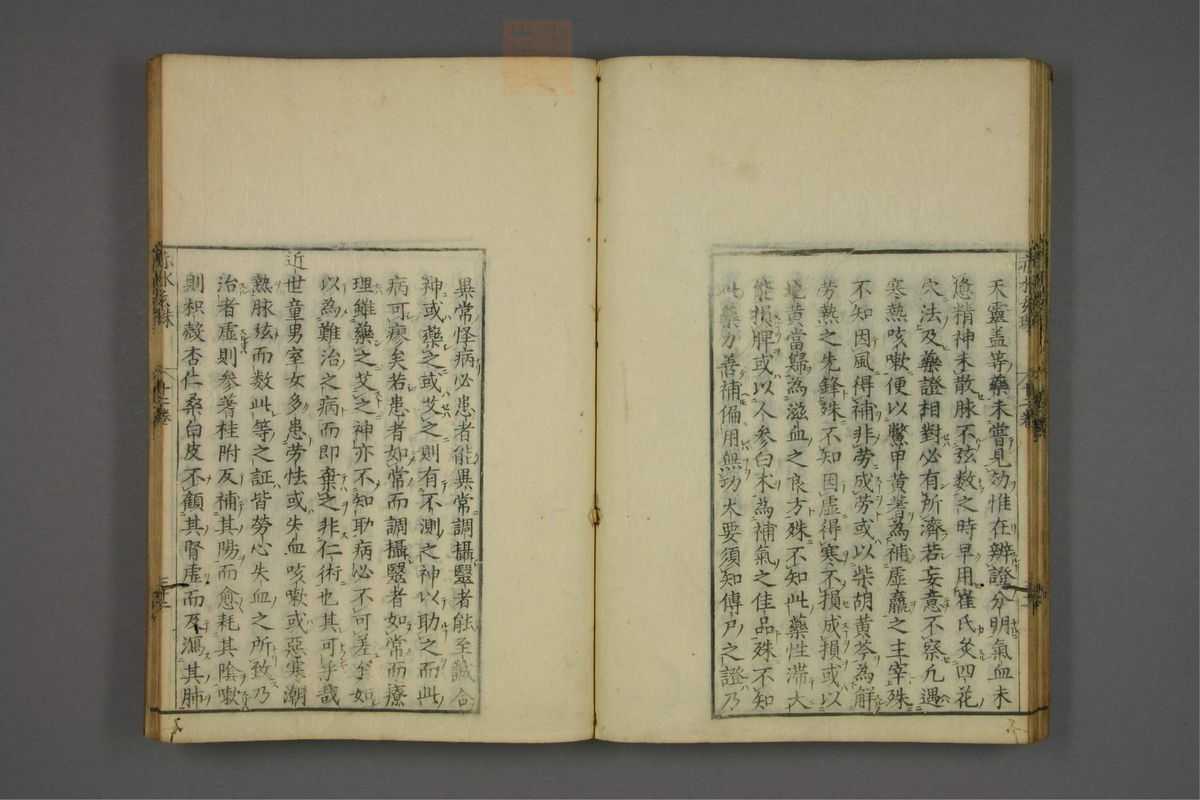 天靈盖等藥未嘗見効惟在辨證分明氣血未
憊精神未散脉不弦数之時早用崔氏灸四花
穴法及藥證相對必有所濟若妄意不察凢遇
寒熱咳嗽便以鱉甲黄蓍為補虚羸之主宰殊
不知因風得補非劳成劳或以柴胡黄芩為解
劳熱之先鋒殊不知因虚得寒不損成損或以
地黄當歸為滋血之良方殊不知此藥性滞大
能損脾或以人参白术為補氣之佳品殊不知
此藥力善補偏用無功大要須知傳尸之證乃
異常怪病必患者能異常調攝醫者能至誠合
神或藥之或艾之則有不測之神以助之而此
病可瘳矣若患者如常而調攝醫者如常而療
理雖藥之艾之神亦不知助病必不可差矣如
以為難治之病而即棄之非仁術也其可乎哉
近世童男室女多患劳怯或失血咳嗽或惡寒潮
熱脉弦而数此等之証皆勞心失血之所致乃
治者虚則参蓍桂附反補其陽而愈耗其陰嗽
則枳殻杏仁桑白皮不顧其腎虚而反瀉其肺
赤水玄珠
卷